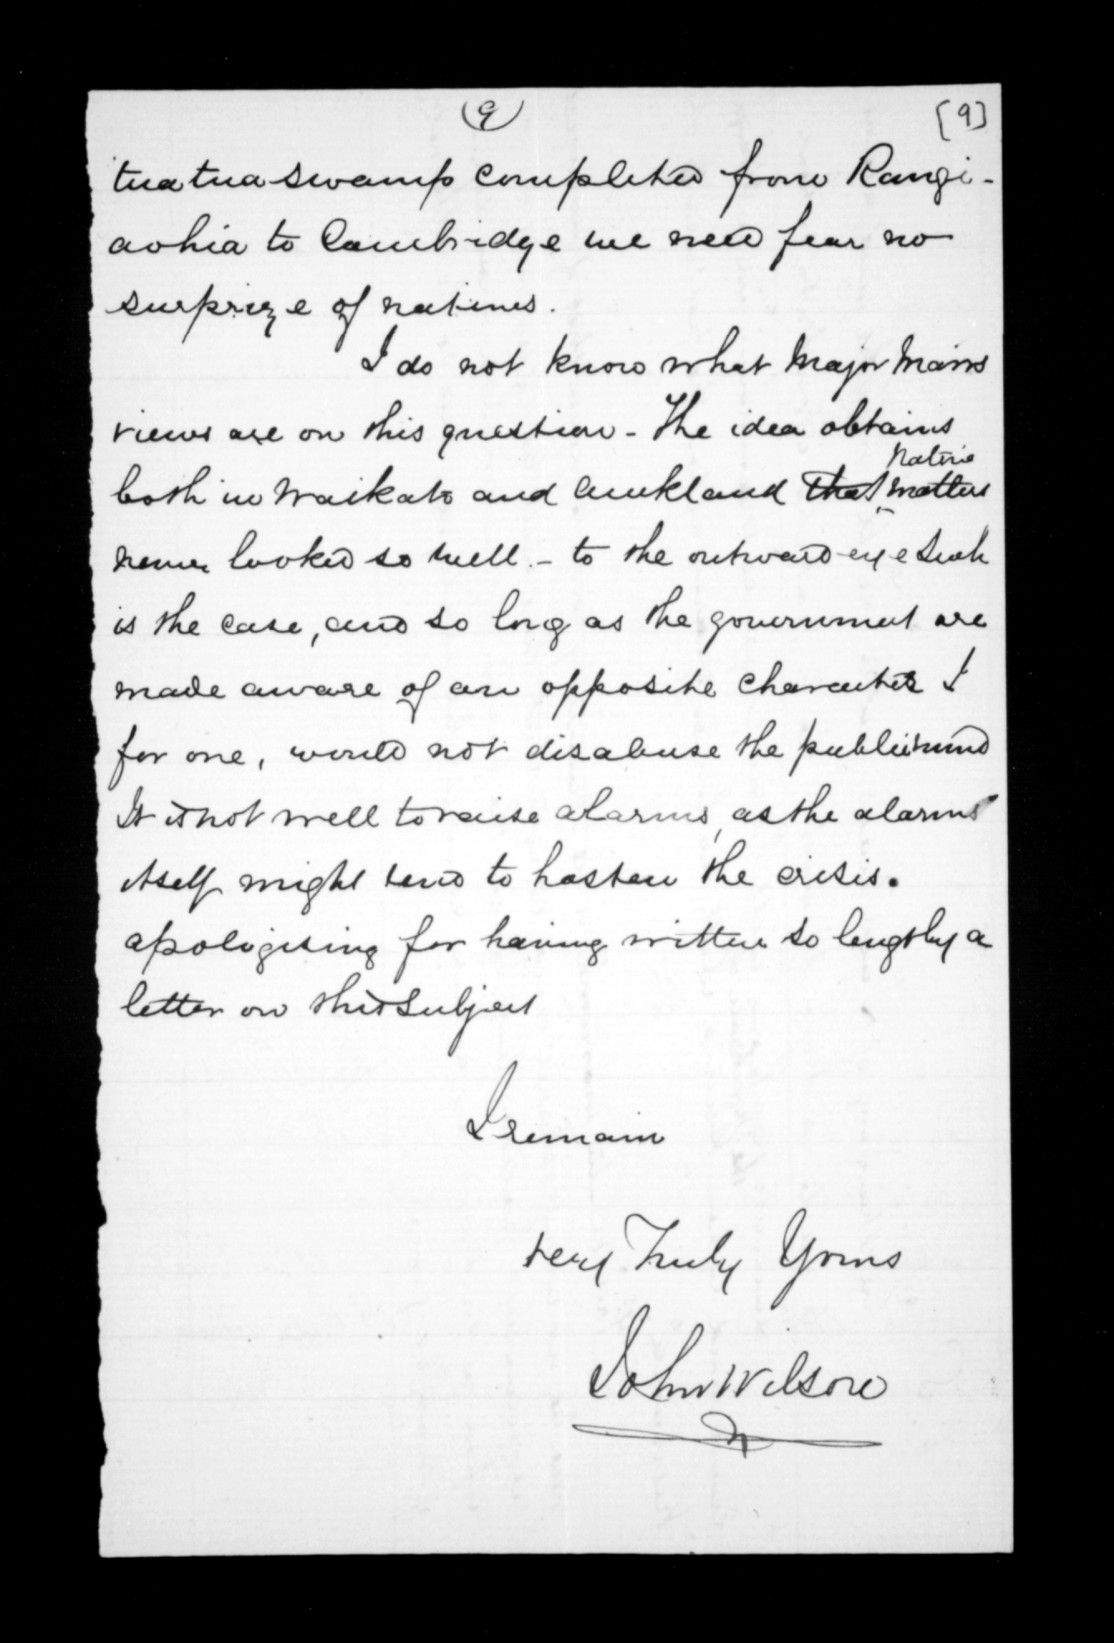 (9)
[9]
tuatua swamp completed from Rangi-
aohia to Cambridge we need fear no
surprize of natives.
I do not know what Major Mairs
views are on this question - The idea obtains
Native
both in Waikato and Auckland that matters
never looked so well. - to the outward eye such
is the case, and so long as the government are
made aware of an opposite character I
for one, would not disabuse the public mind
It is not well to raise alarms, as the alarms
itself might tend to hasten the crisis.
apologising for having written so lengthy a
letter on this subject
I remain
Very Truly Yours
John Wilson